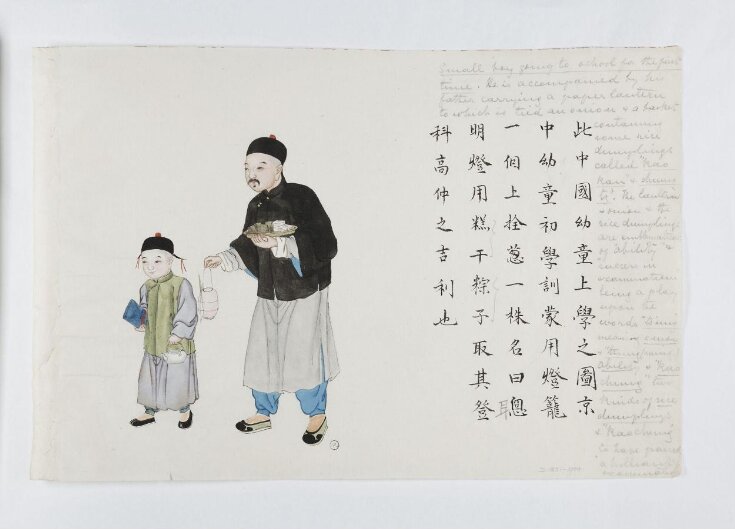 Small boy going to school for the first
time. He is accompanied by his
father carrying a paper lantern
to which is tied an onion & a basket
containing
some rice
dumplings
called "Kao
Kan" & chung
The lantern
onion & the
rice dumplings
are emblematic
of ability &
success in
examinations
being a play
upon the
words
meaning onion
ability" & "Kao
chung two
kinds of rice
dumplings
& "Kaochung
to have passed
a brilliant
examination
此中國幼童上學之圖京
中幼童初學訓蒙用燈籠
一個上拴葱一株名曰聰
明燈用糕干粽子取其登
科高仲之吉利也